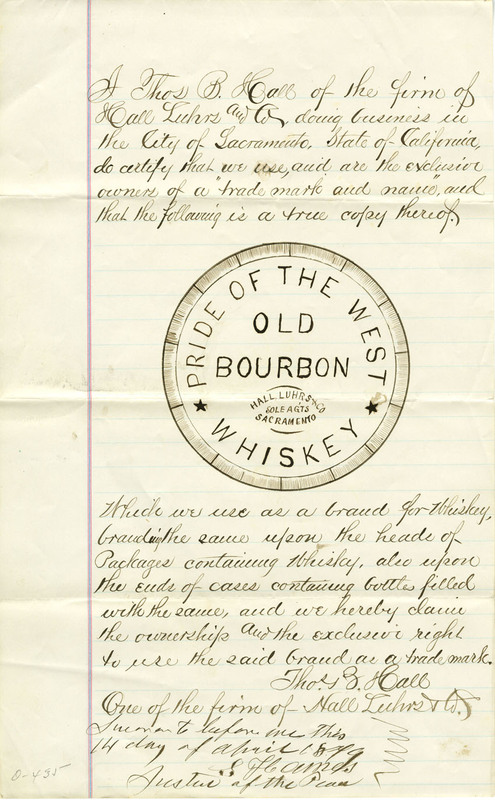 I Thos B. Hall of the firm of
Hall Luhrs and Co, doing business in
the City of Sacramento, State of California,
do certify that we use, and are the exclusive
owners of a "trade mark and name", and
that the following is a true copy thereof.
PRIDE OF THE WEST
OLD
BOURBON
HALL, LUHRS & CO
SOLE AGTS
SACRAMENTO
WHISKEY
Which we use as a brand for Whiskey,
branding the same upon the heads of
Packages containing Whisky, also upon
the ends of cases containing bottles filled
with the same, and we hereby claim
the ownership and the exclusive right
to use the said brand as a trade mark.
Thos. B. Hall
One of the firm of Hall Luhrs & Co.
Sworn to before me this
14 day of April 1879
Justice of the Peace
0-495